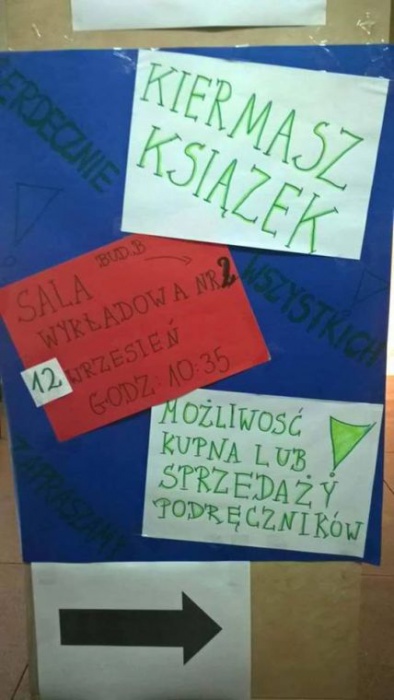 KIERMASZ
KSIĄŻEK
ERDECZNIE
WSZYSTKICH
ZAPRASZAMY
BUD.B
SALA
WYKŁADOWA NR2
12 WRZESIEŃ
GODZ: 10:35
MOŻLIWOŚĆ
KUPNA LUB
SPRZEDAŻY
PODRĘCZNIKÓW